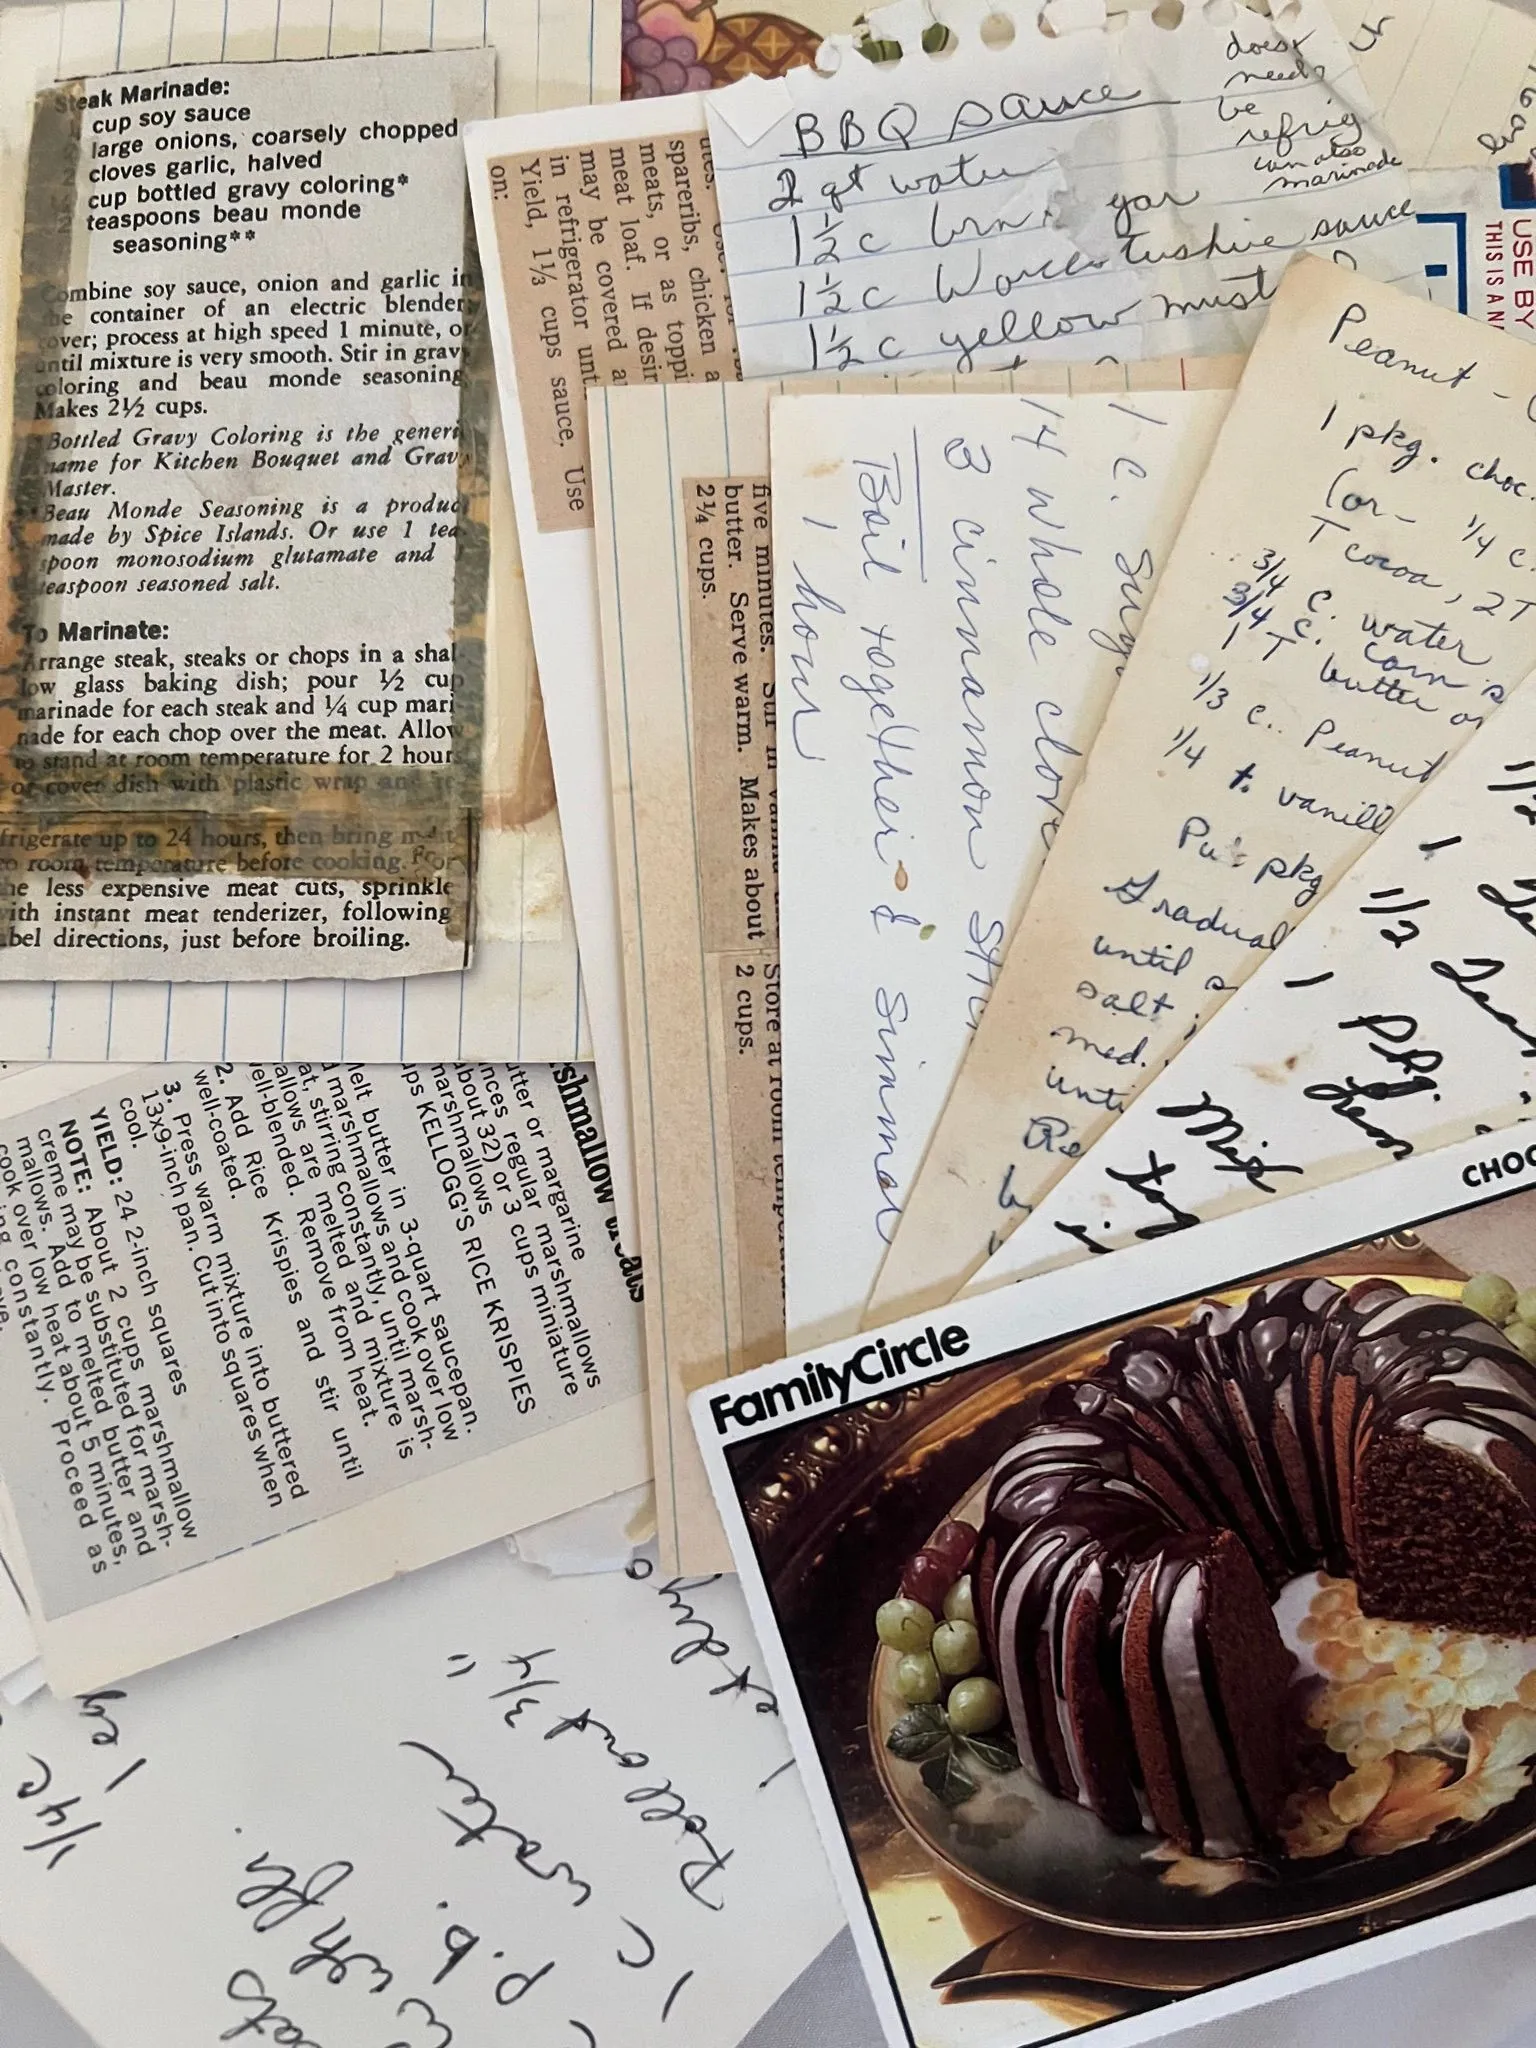 Steak Marinade:
cup soy sauce
large onions, coarsely chopped
cloves garlic, halved
cup bottled gravy coloring*
2 teaspoons beau monde
seasoning**
Combine soy sauce, onion and garlic in
the container of an electric blender
cover; process at high speed 1 minute, or
until mixture is very smooth. Stir in gravy
coloring and beau monde seasoning
Makes 2½ cups.
Bottled Gravy Coloring is the generi
name for Kitchen Bouquet and Grav
Master.
Beau Monde Seasoning is a produc
made by Spice Islands. Or use 1 tea
spoon monosodium glutamate and
teaspoon seasoned salt.
To Marinate:
Arrange steak, steaks or chops in a shal
low glass baking dish; pour ½ cup
marinade for each steak and ¼ cup mari
nade for each chop over the meat. Allow
to stand at room temperature for 2 hour
or cover dish with plastic wrap and re
frigerate up to 24 hours, then bring meat
to room temperature before cooking. For
he less expensive meat cuts, sprinkle
ith instant meat tenderizer, following
abel directions, just before broiling.
spareribs, chicken a
meats, or as toppi
meat loaf. If desir
may be covered a
in refrigerator unti
Yield, 1⅓ cups sauce. Use
on:
BBQ Sauce
2 qt water
1½ c brn gar
1½ c Worcestushire sauce
1½ c yellow must
doesn
need
be
refrig
can also
marinade
USE BY
THIS IS A N
five minutes. Stir in vanilla
butter. Serve warm. Makes about
2¼ cups.
Store at room temperatur
2 cups.
1 c. Sug
14 whole clove
3 cinnamon stic
Boil together & simmer
1 hour
Peanut -
1 pkg. choc.
(or- ¼ c.
T cocoa, 2 T
3/4 c. water
3/4 c. corn s
1 T butter or
1/3 c. Peanut
1/4 t. vanill
Put pkg
Gradual
until s
salt,
med.
unti
Re
b
1/2
1
1/2
1 pkg.
Mix
in
shmallow treats
utter or margarine
nces regular marshmallows
bout 32) or 3 cups miniature
marshmallows
ups KELLOGG'S RICE KRISPIES
Melt butter in 3-quart saucepan.
d marshmallows and cook over low
at, stirring constantly, until marsh-
allows are melted and mixture is
ell-blended. Remove from heat.
2. Add Rice Krispies and stir until
well-coated.
3. Press warm mixture into buttered
13x9-inch pan. Cut into squares when
cool.
YIELD: 24 2-inch squares
NOTE: About 2 cups marshmallow
creme may be substituted for marsh-
mallows. Add to melted butter and
cook over low heat about 5 minutes,
ing constantly. Proceed as
ove.
1/4 c
1 eg
et dry
Roll out 3/4"
1 c water
p.b.
oats
CHOC
FamilyCircle